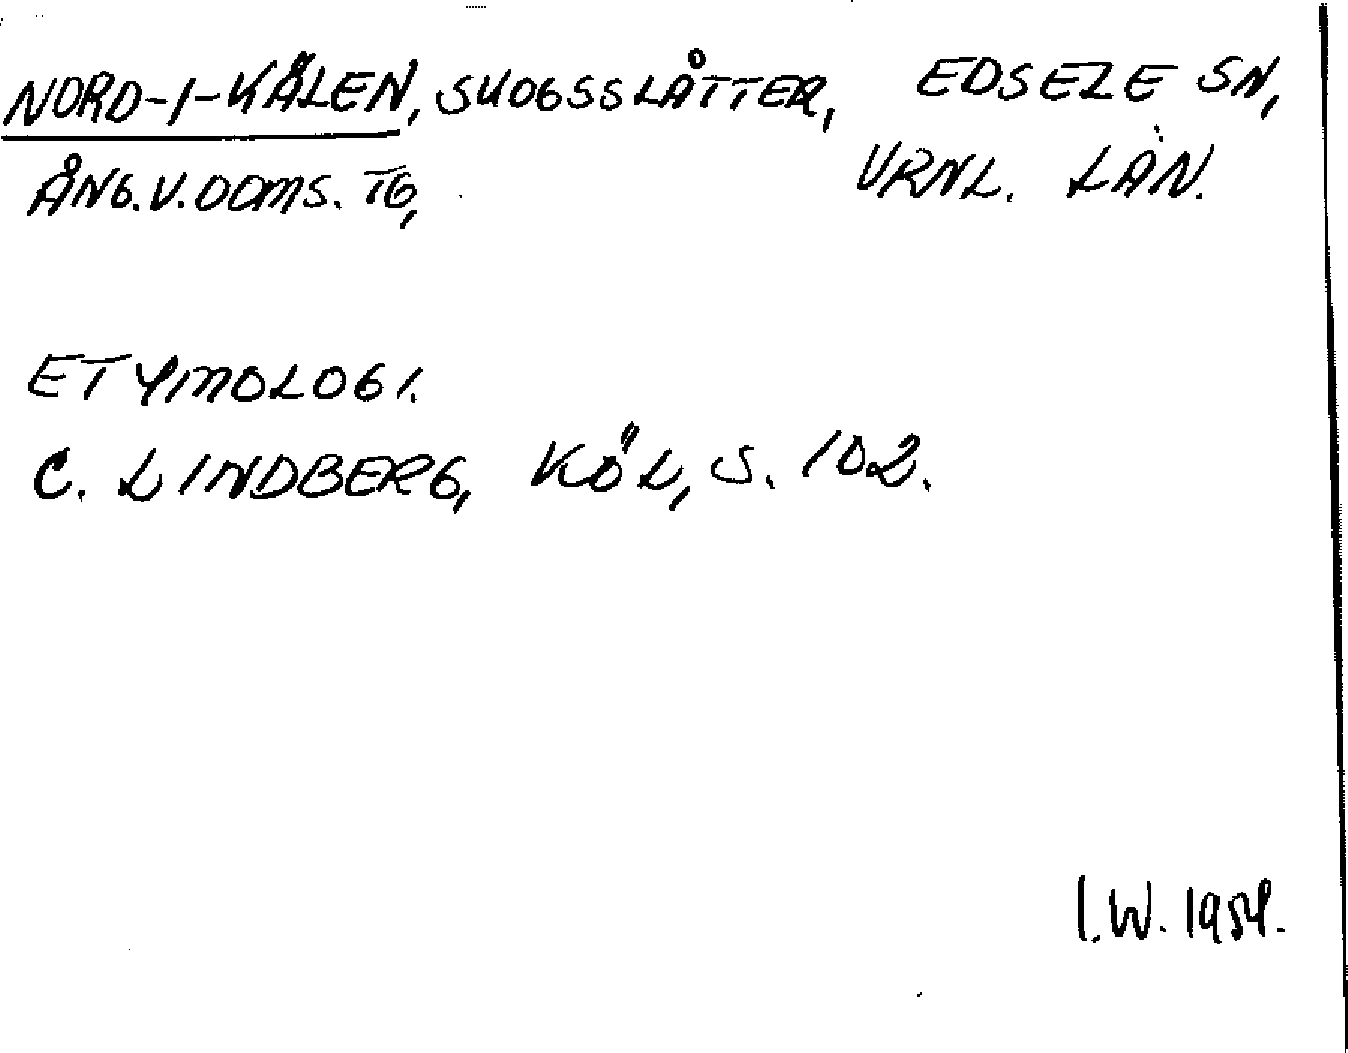 NORD-I-KÅLEN, SKOGSSLÅTTER, EDSELE SN,
ÅNG.V.DOMS. TG, VRNL. LÄN.
ETYMOLOGI.
C. LINDBERG, KÖL, S. 102.
I.W. 1954.